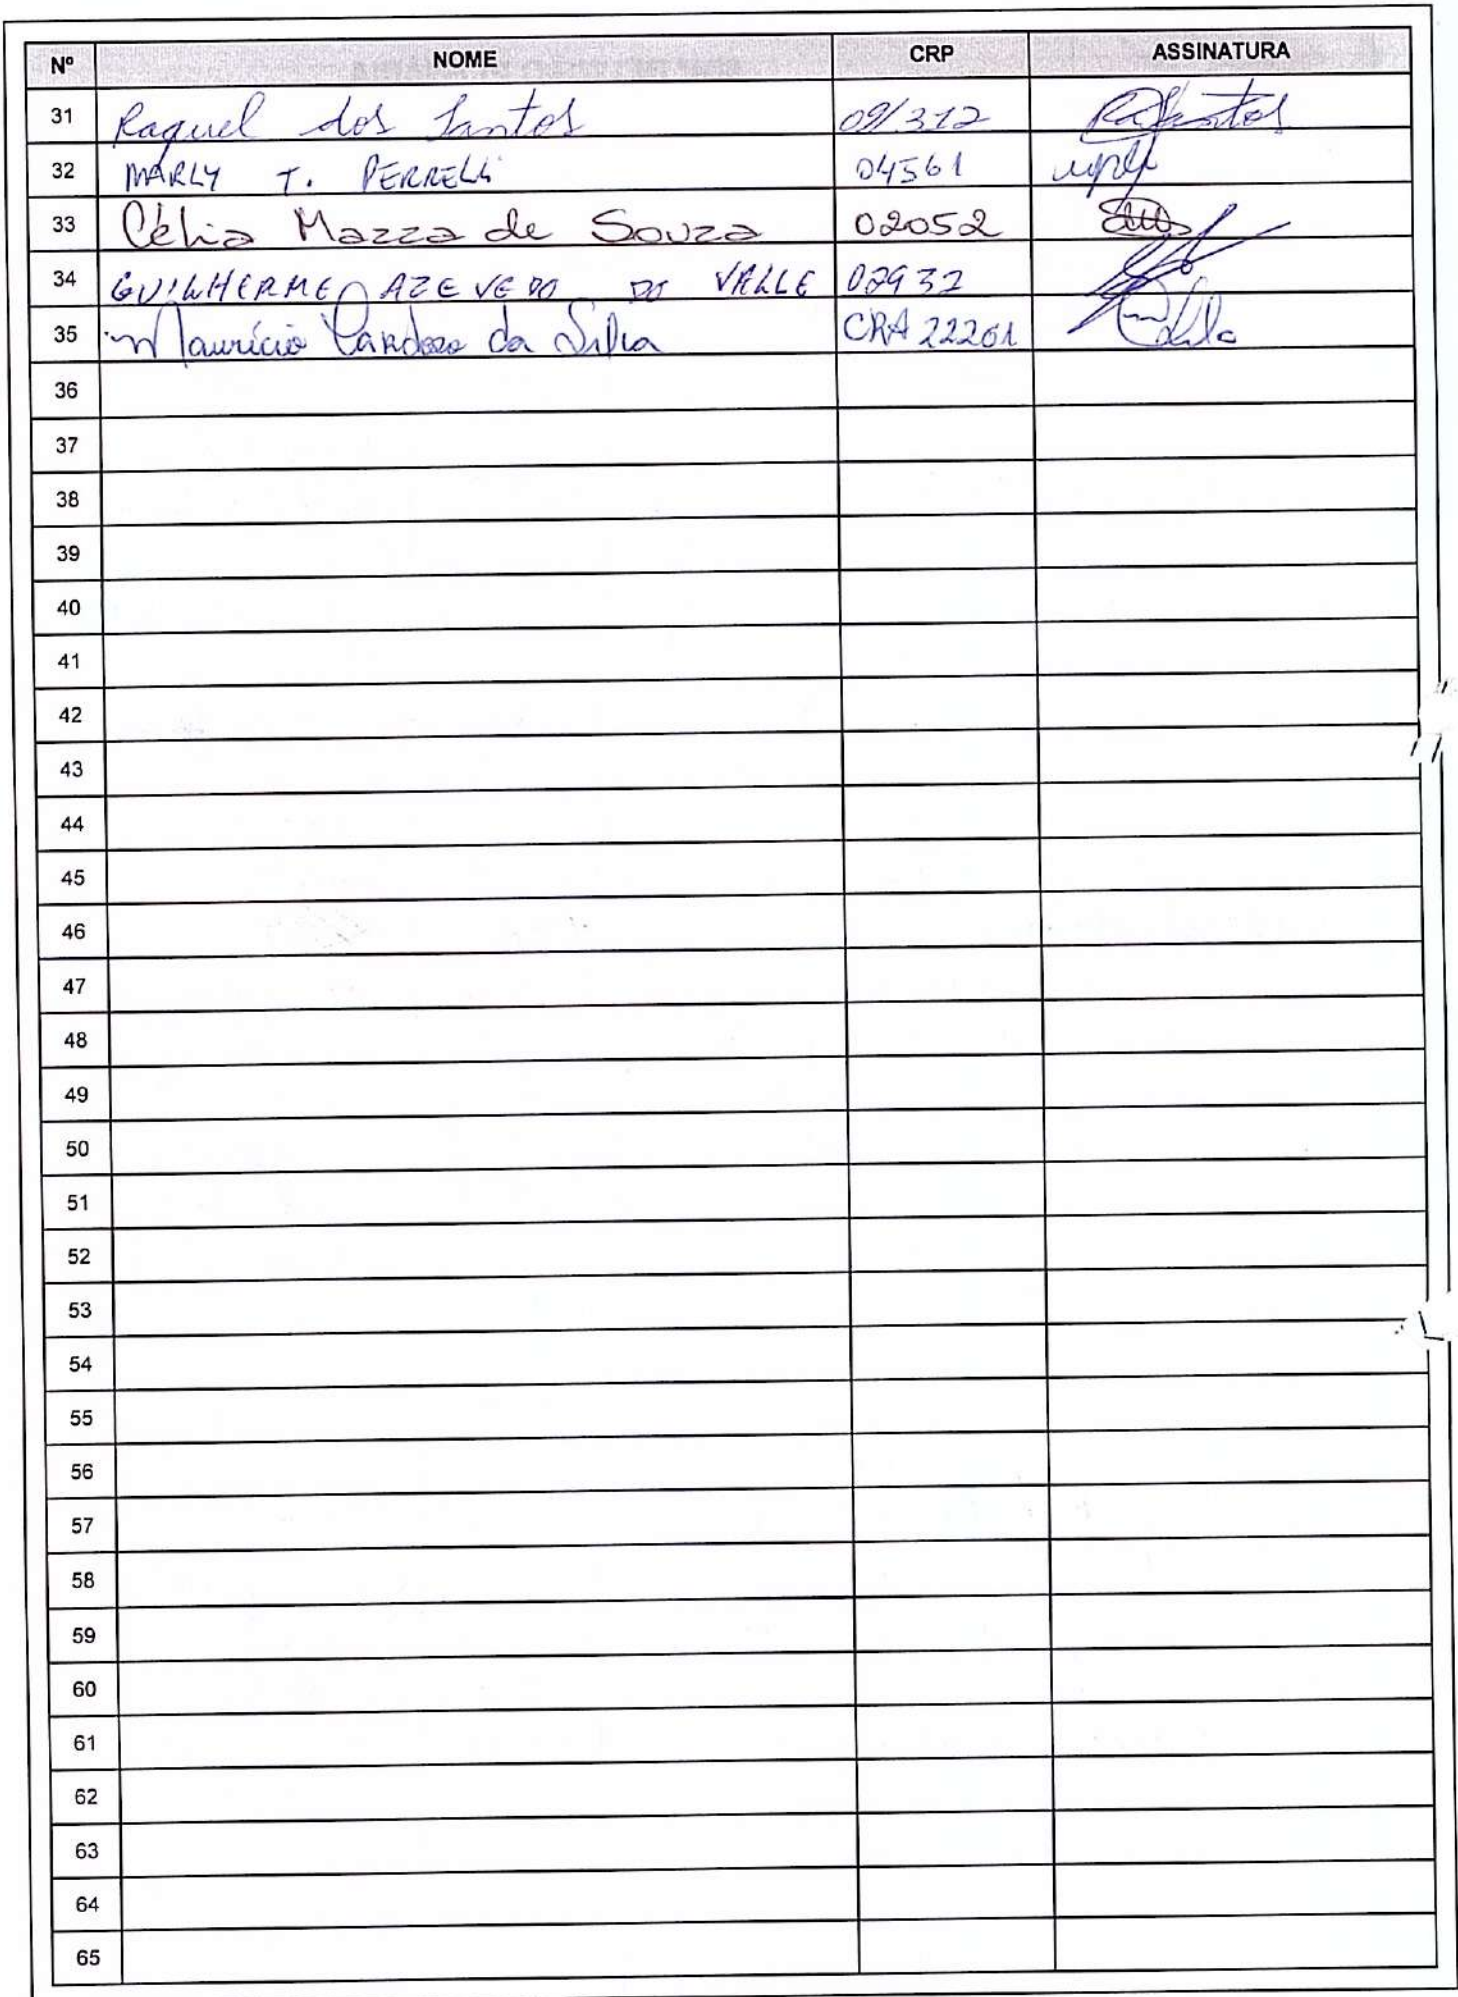 Nº NOME CRP ASSINATURA
31 Raquel dos Santos 09/312 RaSantos
32 MARLY T. PERRELLI 04561
33 Célia Mazza de Souza 02052
34 GUILHERME AZEVEDO DO VALLE 02932
35 Maurício Cardoso da Silva CRA 22201
36
37
38
39
40
41
42
43
44
45
46
47
48
49
50
51
52
53
54
55
56
57
58
59
60
61
62
63
64
65